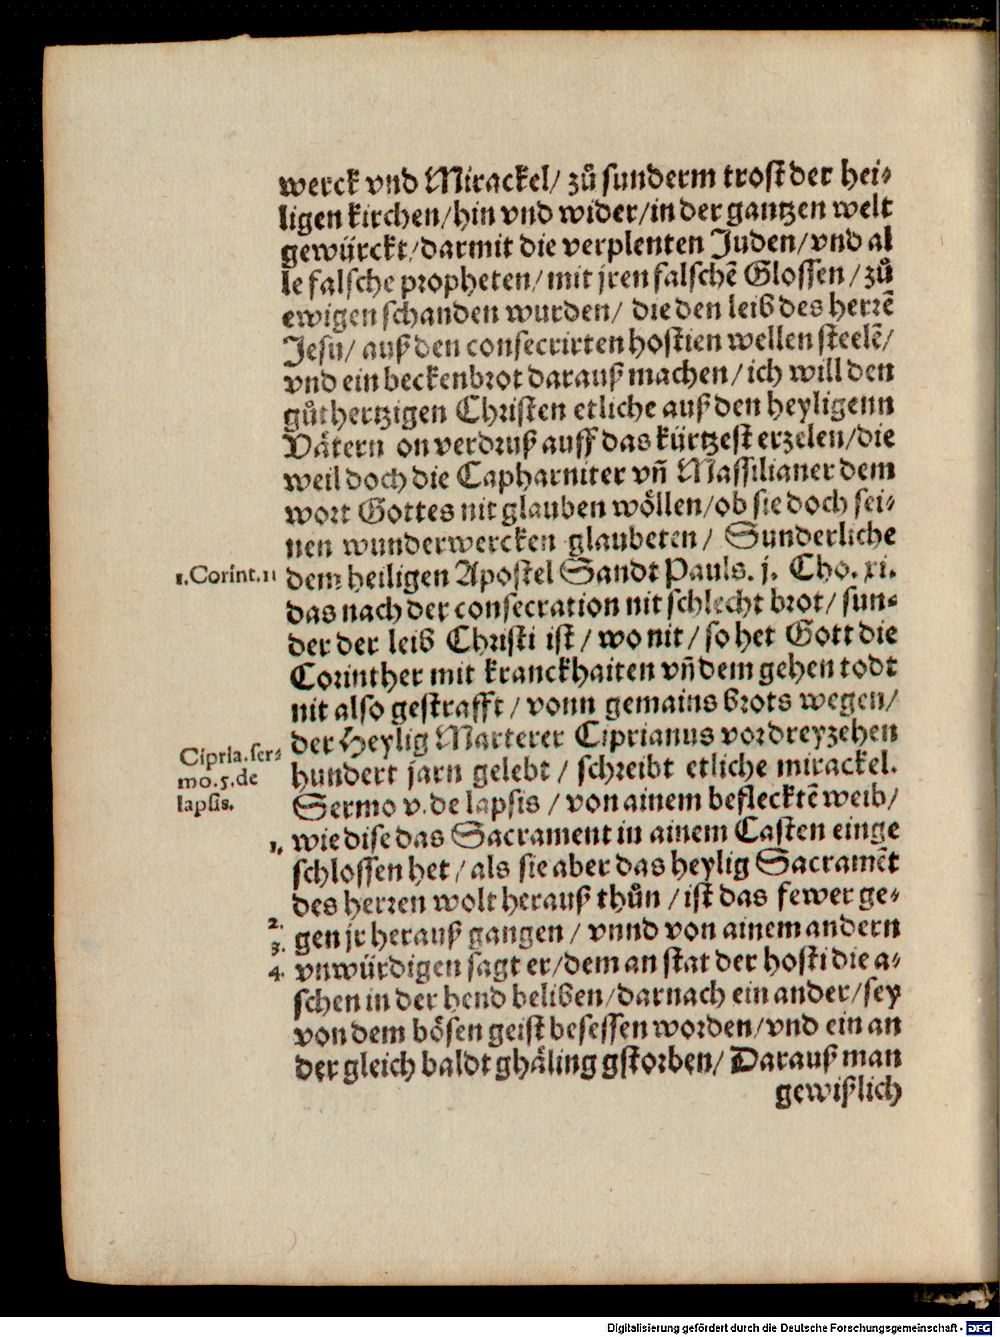 werck vnd Mirackel/ zů sunderm trost der hei-
ligen kirchen/ hin vnd wider/ in der gantzen welt
gewürckt/ darmit die verplenten Juden/ vnd al
le falsche propheten/ mit jren falschē Glossen/ zů
ewigen schanden wurden/ die den leib des herrē
Jesu/ auß den consecrirten hostien wellen steelē/
vnd ein beckenbrot darauß machen/ ich will den
gůthertzigen Christen etliche auß den heyligenn
Vätern on verdruß auff das kürtzest erzelen/ die
weil doch die Capharniter vñ Massilianer dem
wort Gottes nit glauben wöllen/ ob sie doch sei-
nen wunderwercken glaubeten/ Sunderliche
1.Corint.11 dem heiligen Apostel Sandt Pauls. j. Cho. xi.
das nach der consecration nit schlecht brot/ sun-
der der leib Christi ist/ wo nit/ so het Gott die
Corinther mit kranckhaiten vñ dem gehen todt
nit also gestrafft/ vonn gemains brots wegen/
der Heylig Marterer Ciprianus vor dreyzehen
Cipria.ser-
mo.5.de
lapsis.
hundert jarn gelebt/ schreibt etliche mirackel.
Sermo v. de lapsis/ von ainem beflecktē weib/
1. wie dise das Sacrament in ainem Casten einge
schlossen het/ als sie aber das heylig Sacramēt
des herren wolt herauß thůn/ ist das fewer ge-
2.
3. gen jr herauß gangen/ vnnd von ainem andern
4. vnwürdigen sagt er/ dem an stat der hosti die a-
schen in der hend beliben/ darnach ein ander/ sey
von dem bösen geist besessen worden/ vnd ein an
der gleich baldt ghäling gstorben/ Darauß man
gewißlich
Digitalisierung gefördert durch die Deutsche Forschungsgemeinschaft - DFG